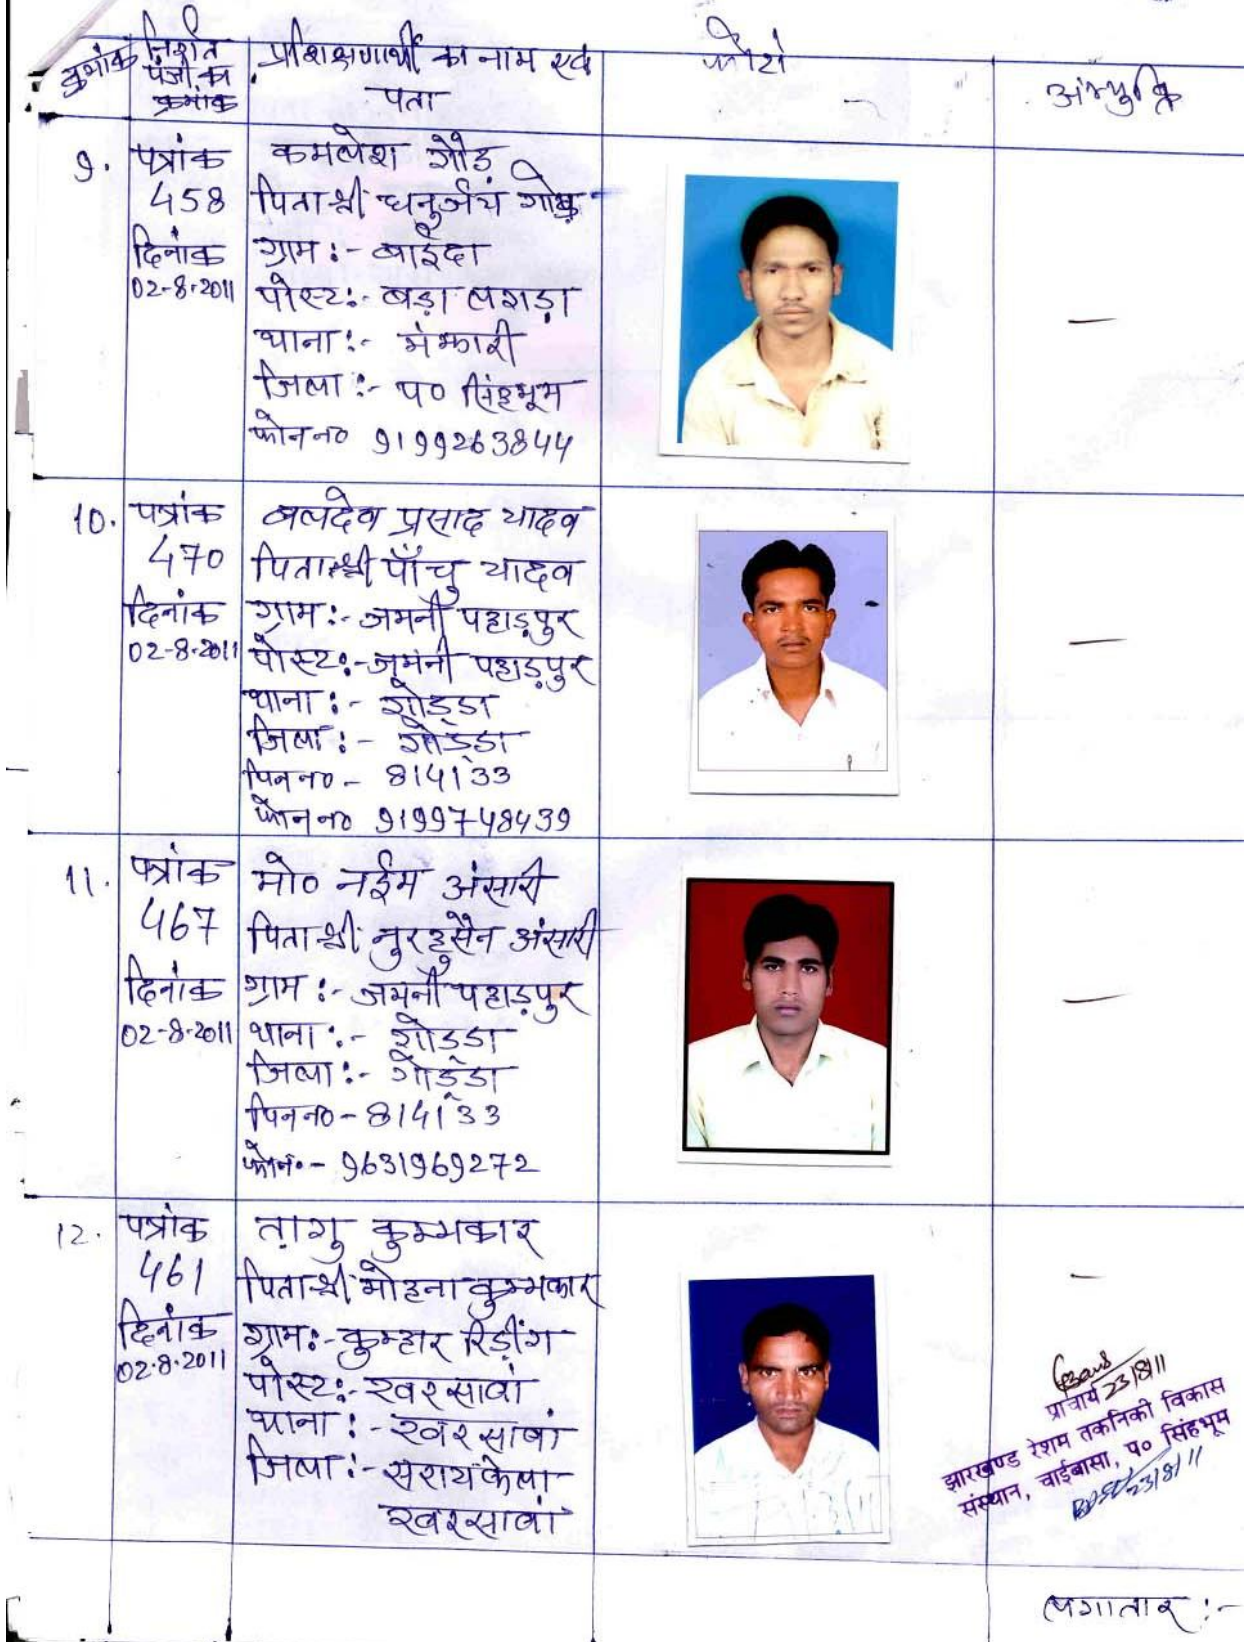 क्रमांक
निर्गत
पंजी का
क्रमांक
प्रशिक्षणार्थी का नाम एवं
पता
फोटो
अभ्युक्ति
9.
पत्रांक
458
दिनांक
02-8-2011
कमलेश गोड़
पिता श्री धनुर्जय गोड़
ग्राम :- बाईदा
पोस्ट :- बड़ा लगड़ा
थाना :- मंझारी
जिला :- प० सिंहभूम
फोन न० 9199263844
10.
पत्रांक
470
दिनांक
02-8-2011
बलदेव प्रसाद यादव
पिता श्री पाँचु यादव
ग्राम :- जमनी पहाड़पुर
पोस्ट :- जमनी पहाड़पुर
थाना :- गोड्डा
जिला :- गोड्डा
पिन न० - 814133
फोन न० 9199748439
11.
पत्रांक
467
दिनांक
02-8-2011
मो० नईम अंसारी
पिता श्री नुरहुसैन अंसारी
ग्राम :- जमनी पहाड़पुर
थाना :- गोड्डा
जिला :- गोड्डा
पिन न० - 814133
फोन० - 9631969272
12.
पत्रांक
461
दिनांक
02.8.2011
तागु कुम्भकार
पिता श्री मोहना कुम्भकार
ग्राम :- कुम्हार रिडींग
पोस्ट :- खरसावां
थाना :- खरसावां
जिला :- सरायकेला
खरसावां
23/8/11
प्राचार्य
झारखण्ड रेशम तकनिकी विकास
संस्थान, चाईबासा, प० सिंहभूम
23/8/11
लगातार :-